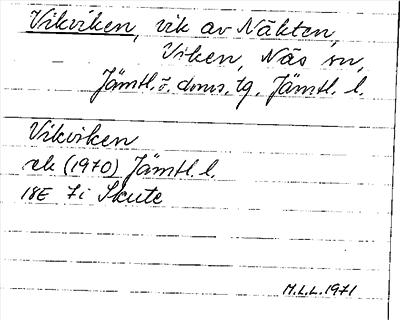 Vikviken, vik av Näkten,
Viken, Näs sn,
Jämtl. ö. doms. tg. Jämtl. l.
Vikviken
ek (1970) Jämtl. l.
18E 7i Skute
M.L.L. 1971